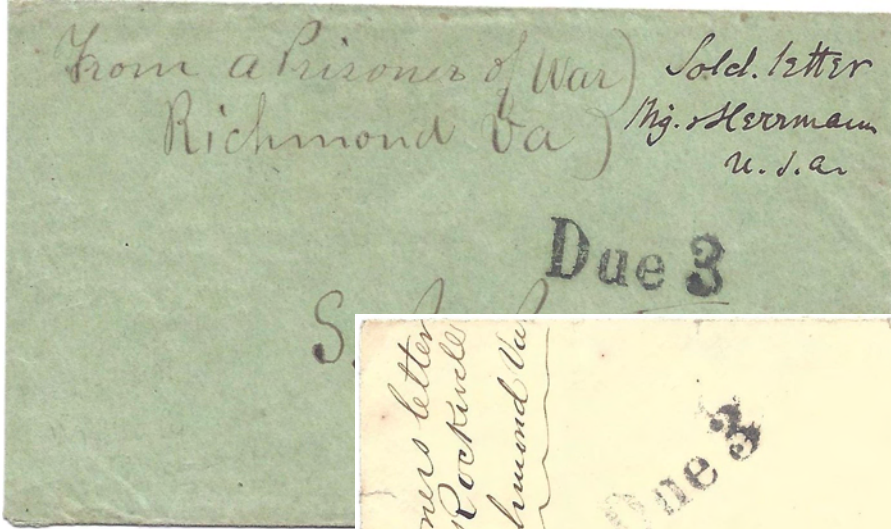 From a Prisoner of War)
Richmond Va )
Sold. letter
Herrmann
U.S.A.
Due 3
S.
ners letter
Rockville
hmond Va
Due 3